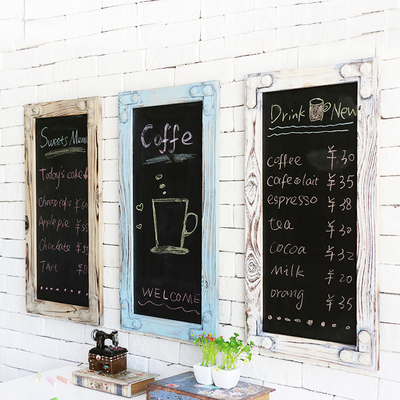 Sweets Menu
Today's cake
Cheese cafe
Apple pie
Chocolate
Tart
Coffe
WELCOME
Drink New
coffee ¥30
cafe olait ¥35
espresso ¥38
tea ¥30
cocoa ¥32
milk ¥20
orang ¥35